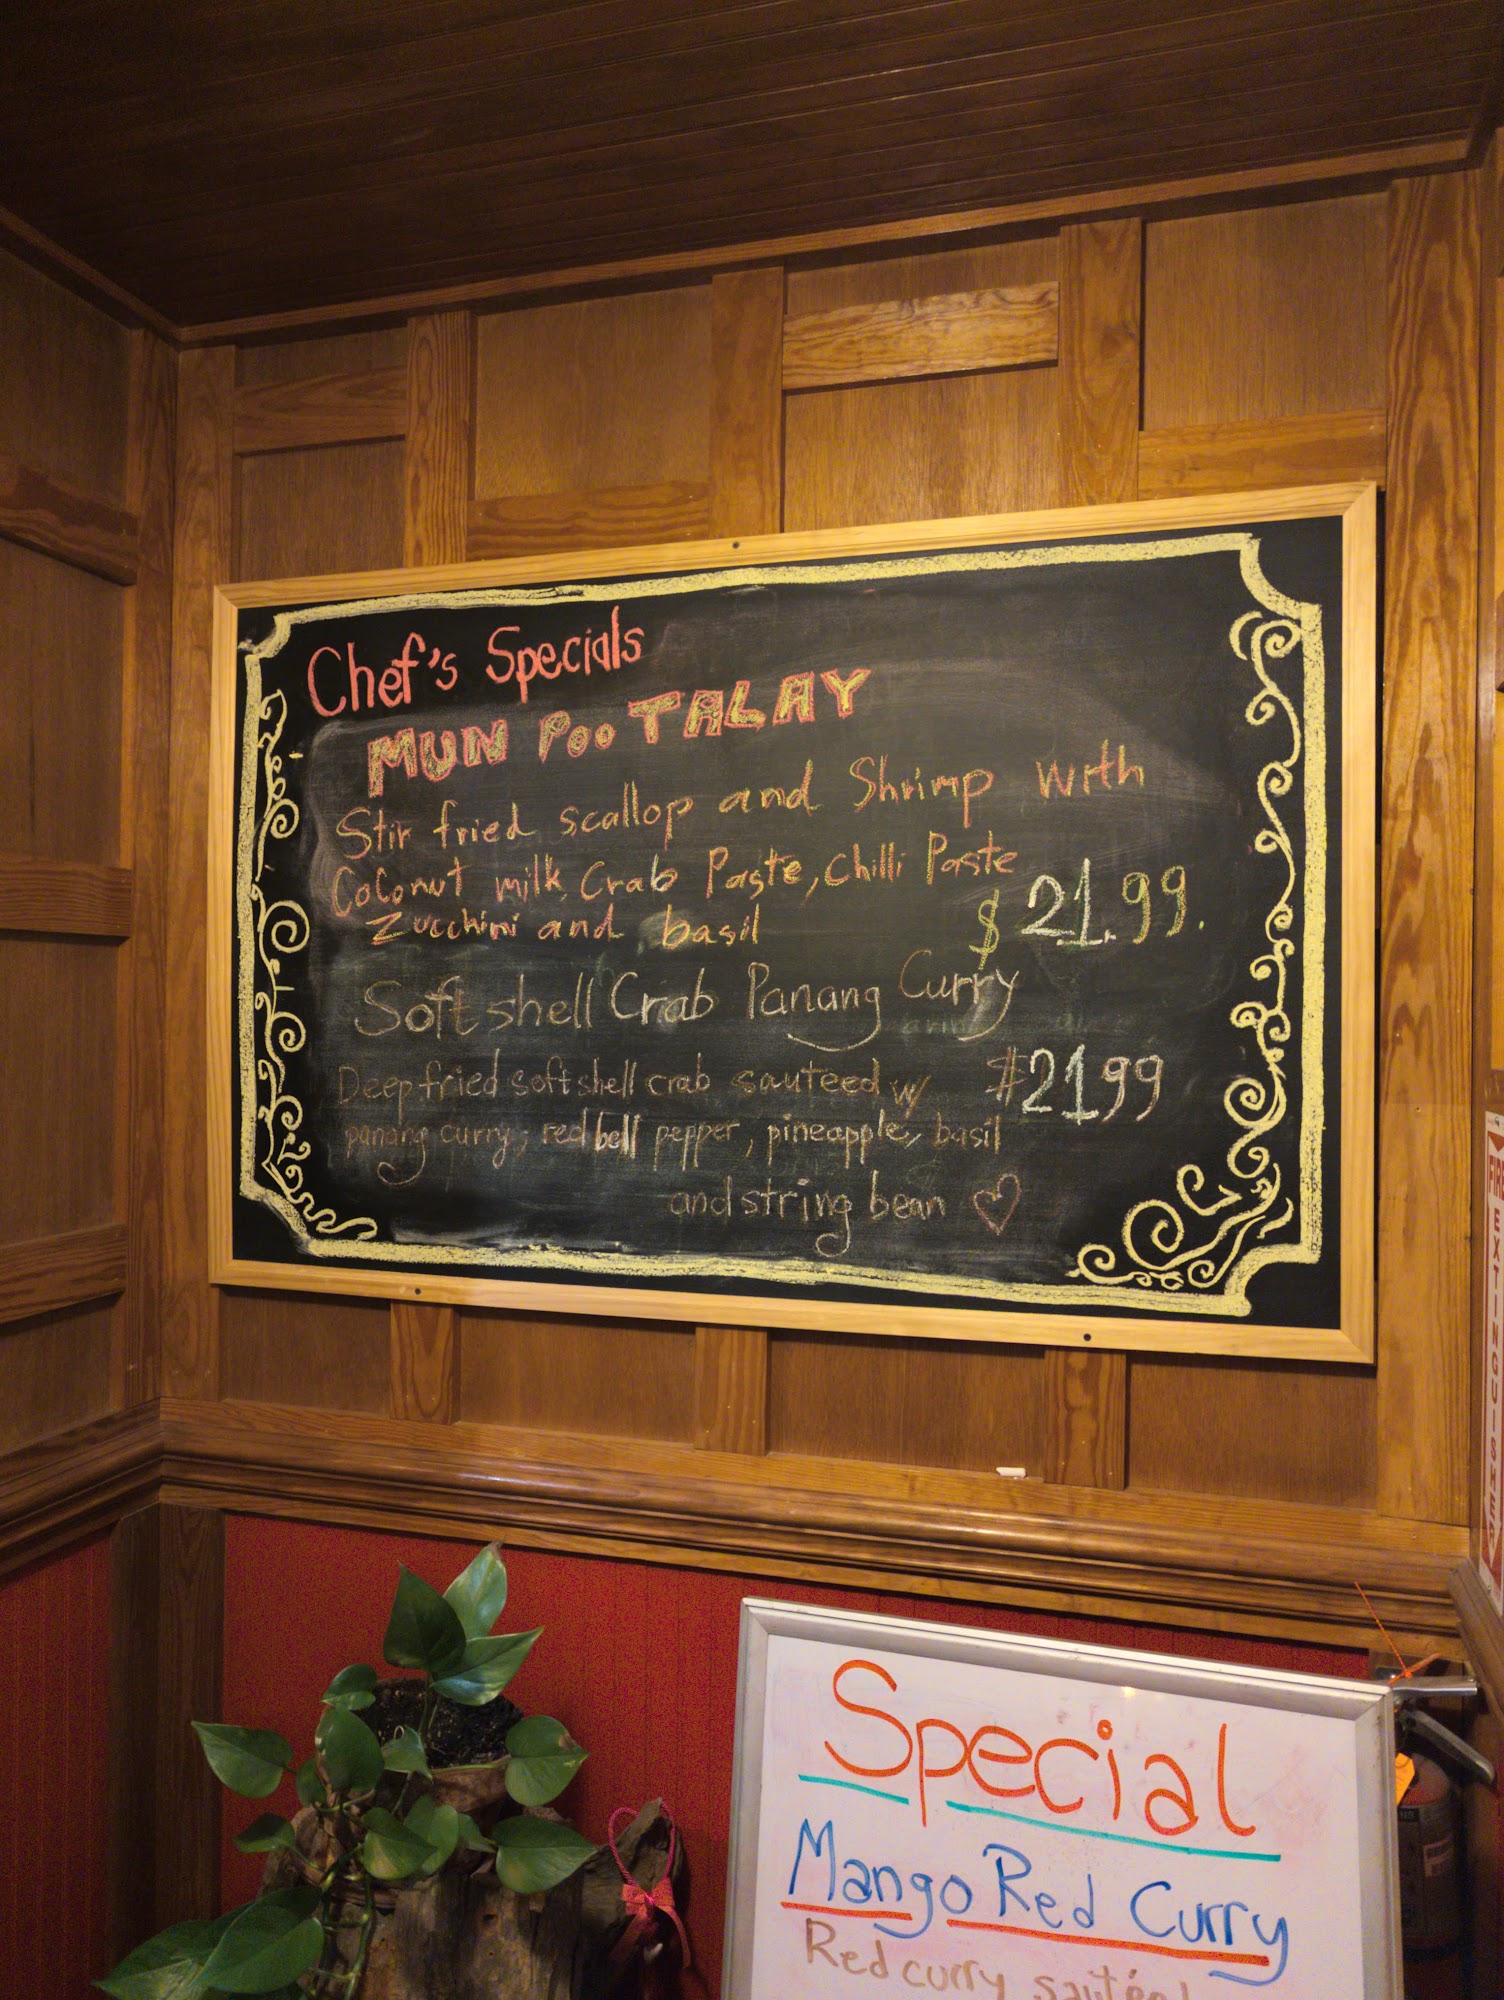 Chef's Specials
MUN POO TALAY
Stir fried scallop and Shrimp with
Coconut milk, Crab Paste, Chilli Paste
Zucchini and basil
$21.99.
Soft shell Crab Panang Curry
Deep fried soft shell crab sauteed w/
$21.99
panang curry, red bell pepper, pineapple, basil
and string bean ♡
FIRE EXTINGUISHER
Special
Mango Red Curry
Red curry